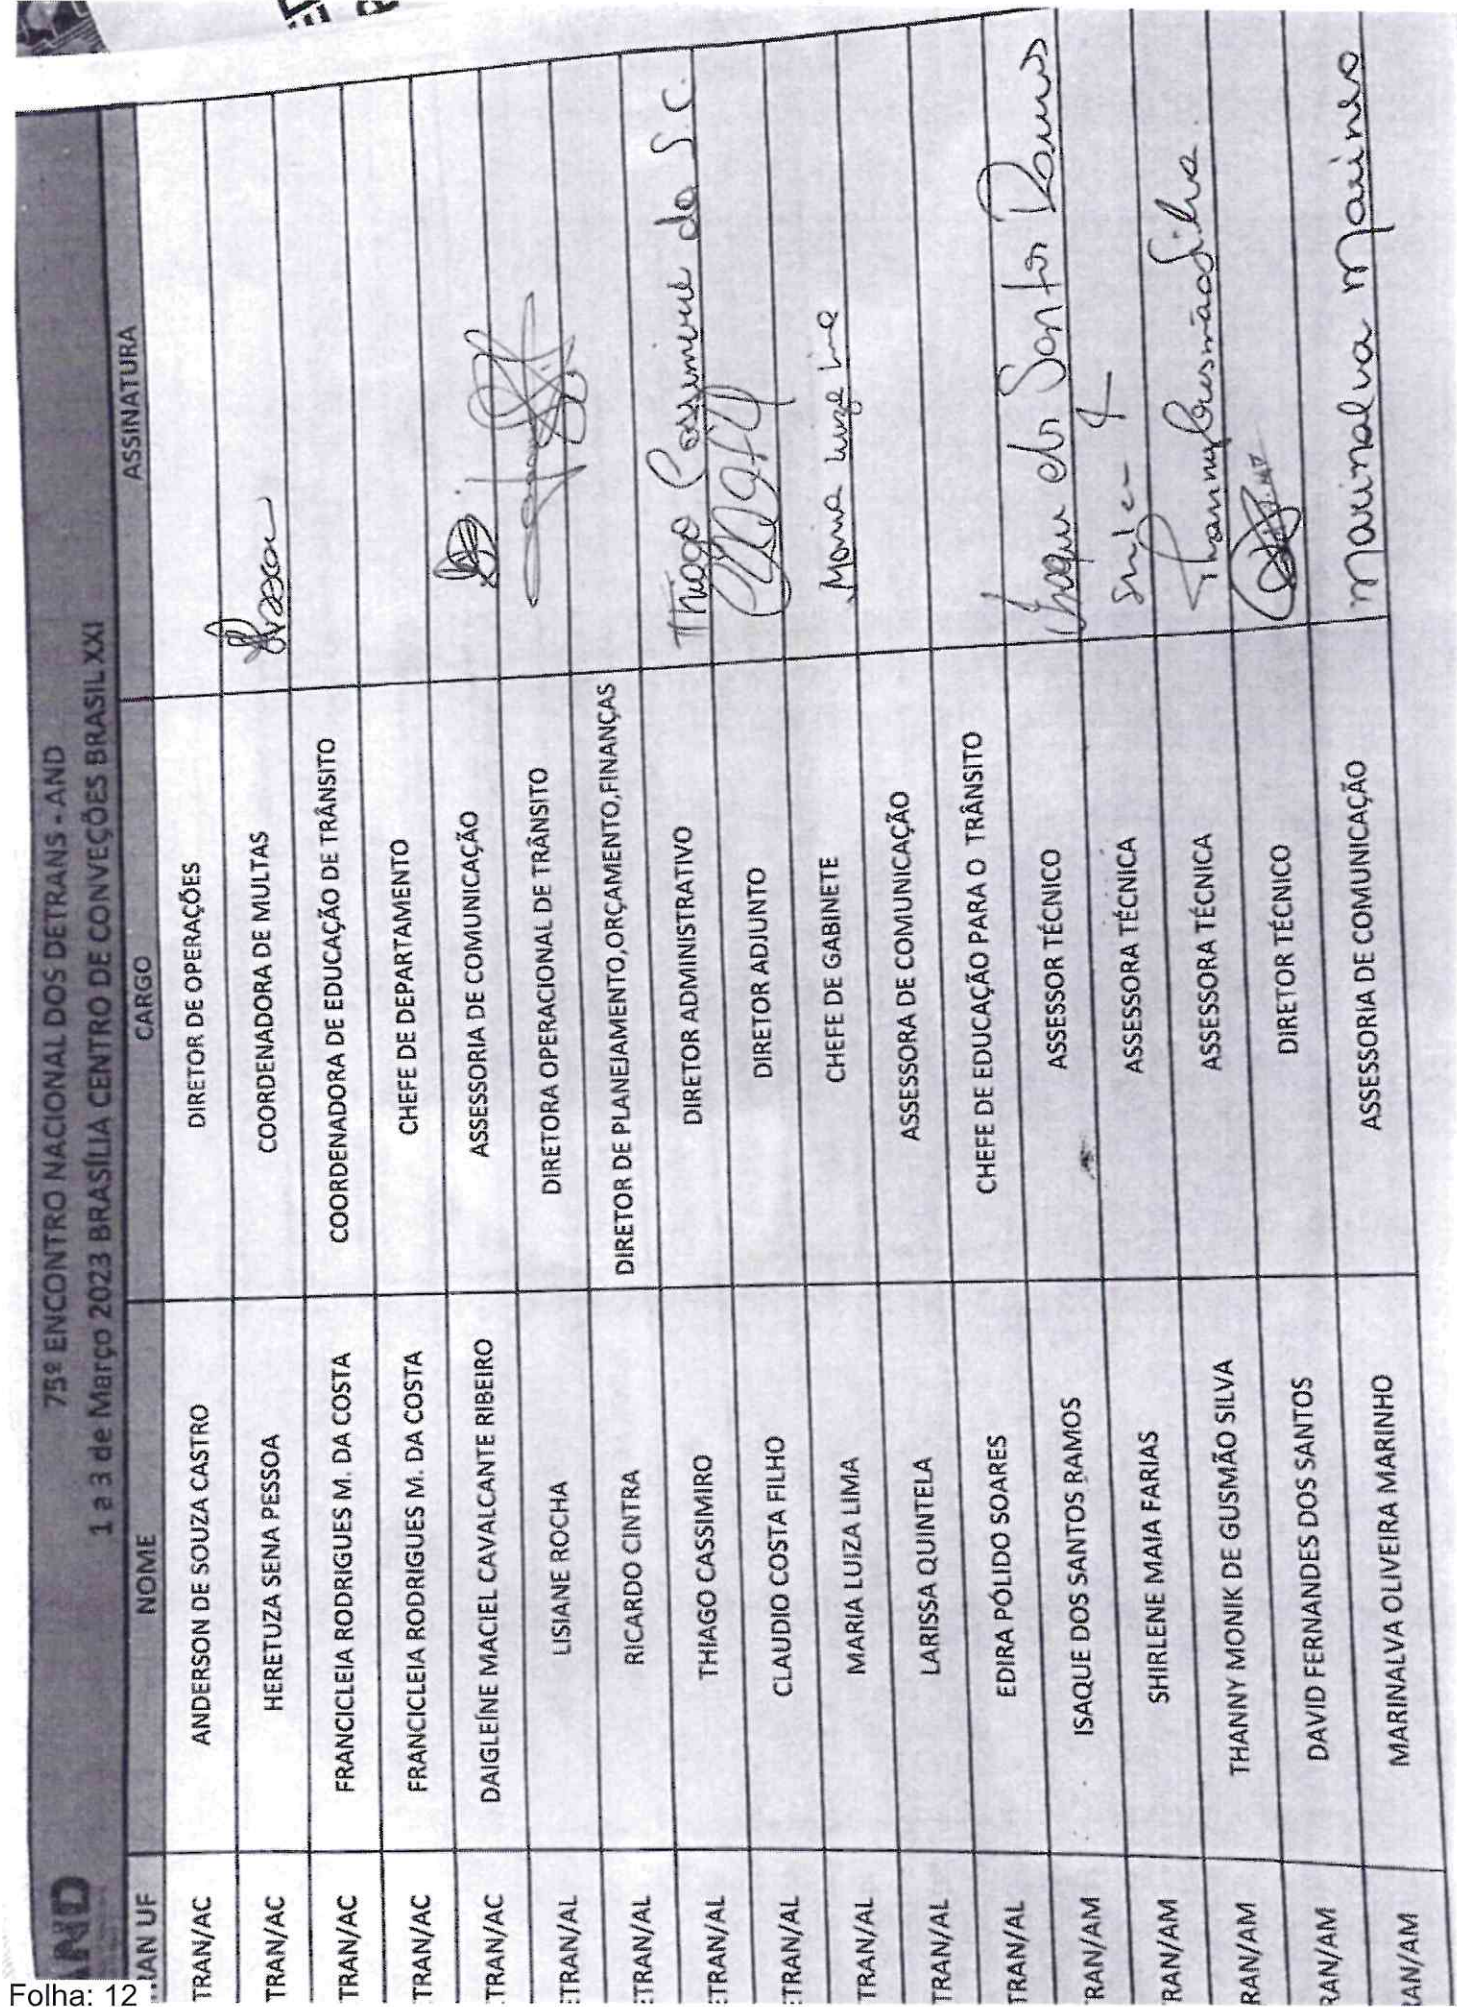 75º ENCONTRO NACIONAL DOS DETRANS - AND
1 a 3 de Março 2023 BRASÍLIA CENTRO DE CONVEÇÕES BRASIL XXI
AND
TRAN UF NOME CARGO ASSINATURA
TRAN/AC ANDERSON DE SOUZA CASTRO DIRETOR DE OPERAÇÕES
TRAN/AC HERETUZA SENA PESSOA COORDENADORA DE MULTAS
TRAN/AC FRANCICLEIA RODRIGUES M. DA COSTA COORDENADORA DE EDUCAÇÃO DE TRÂNSITO
TRAN/AC FRANCICLEIA RODRIGUES M. DA COSTA CHEFE DE DEPARTAMENTO
TRAN/AC DAIGLEÍNE MACIEL CAVALCANTE RIBEIRO ASSESSORIA DE COMUNICAÇÃO
ETRAN/AL LISIANE ROCHA DIRETORA OPERACIONAL DE TRÂNSITO
ETRAN/AL RICARDO CINTRA DIRETOR DE PLANEJAMENTO,ORÇAMENTO,FINANÇAS
ETRAN/AL THIAGO CASSIMIRO DIRETOR ADMINISTRATIVO Thiago Cassimiro do S. C.
ETRAN/AL CLAUDIO COSTA FILHO DIRETOR ADJUNTO
TRAN/AL MARIA LUIZA LIMA CHEFE DE GABINETE Maria Luiza Lima
TRAN/AL LARISSA QUINTELA ASSESSORA DE COMUNICAÇÃO
TRAN/AL EDIRA PÓLIDO SOARES CHEFE DE EDUCAÇÃO PARA O TRÂNSITO
RAN/AM ISAQUE DOS SANTOS RAMOS ASSESSOR TÉCNICO Isaque dos Santos Ramos
RAN/AM SHIRLENE MAIA FARIAS ASSESSORA TÉCNICA
RAN/AM THANNY MONIK DE GUSMÃO SILVA ASSESSORA TÉCNICA Thanny Gusmão Silva
RAN/AM DAVID FERNANDES DOS SANTOS DIRETOR TÉCNICO
AN/AM MARINALVA OLIVEIRA MARINHO ASSESSORIA DE COMUNICAÇÃO Marinalva Marinho
Folha: 12